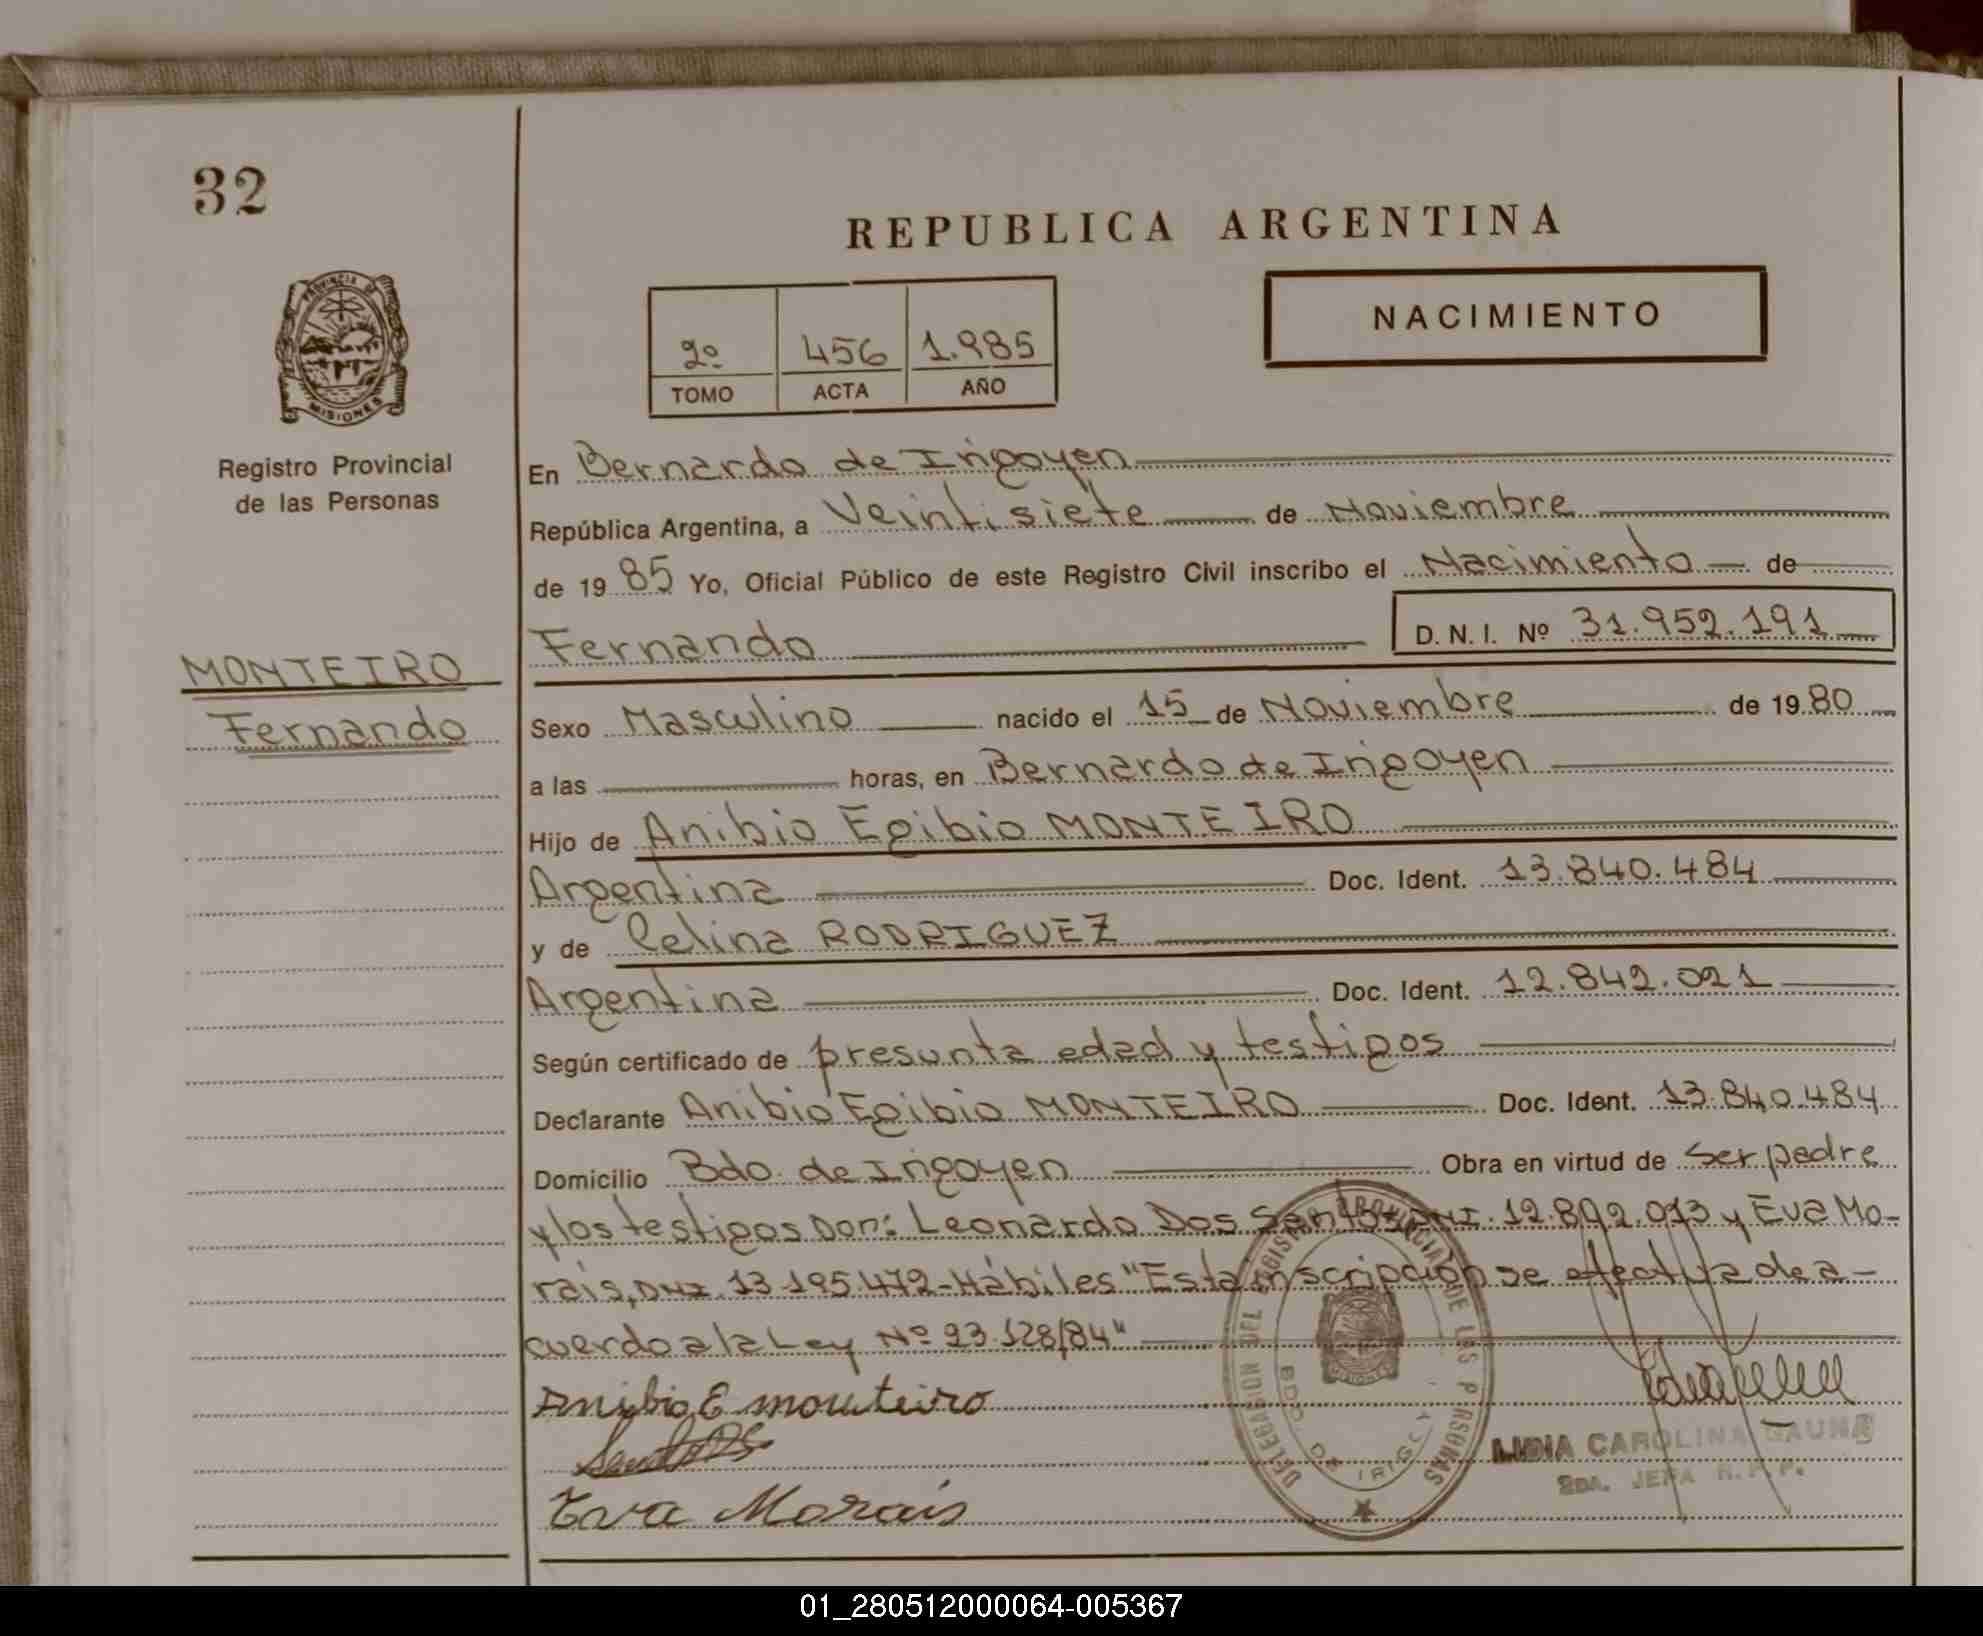 32
REPUBLICA ARGENTINA
NACIMIENTO
2º 456 1.985
TOMO ACTA AÑO
PROVINCIA DE
MISIONES
Registro Provincial
de las Personas
En Bernardo de Irigoyen
República Argentina, a Veintisiete de Noviembre
de 19 85 Yo, Oficial Público de este Registro Civil inscribo el Nacimiento de
MONTEIRO
Fernando
Fernando D.N.I. Nº 31.952.191
Sexo Masculino nacido el 15 de Noviembre de 19 80
a las horas, en Bernardo de Irigoyen
Hijo de Anibio Egibio MONTEIRO
Argentina Doc. Ident. 13.840.484
y de Celina RODRIGUEZ
Argentina Doc. Ident. 12.842.021
Según certificado de presunta edad y testigos
Declarante Anibio Egibio MONTEIRO Doc. Ident. 13.840.484
Domicilio Bdo. de Irigoyen Obra en virtud de ser padre
y los testigos Don: Leonardo Dos Santos DNI. 12.892.073 y Eva Mo-
rais, DNI. 13.195.472-Hábiles "Esta inscripción se efectua de a-
cuerdo a la Ley Nº 23.128/84"
Anibio E monteiro
Eva Morais
DELEGACION DEL REGISTRO PROVINCIAL DE LAS PERSONAS
BDO. DE IRIGOY
MISIONES
LIDIA CAROLINA GAUNA
2DA. JEFA R.P.P.
01_280512000064-005367